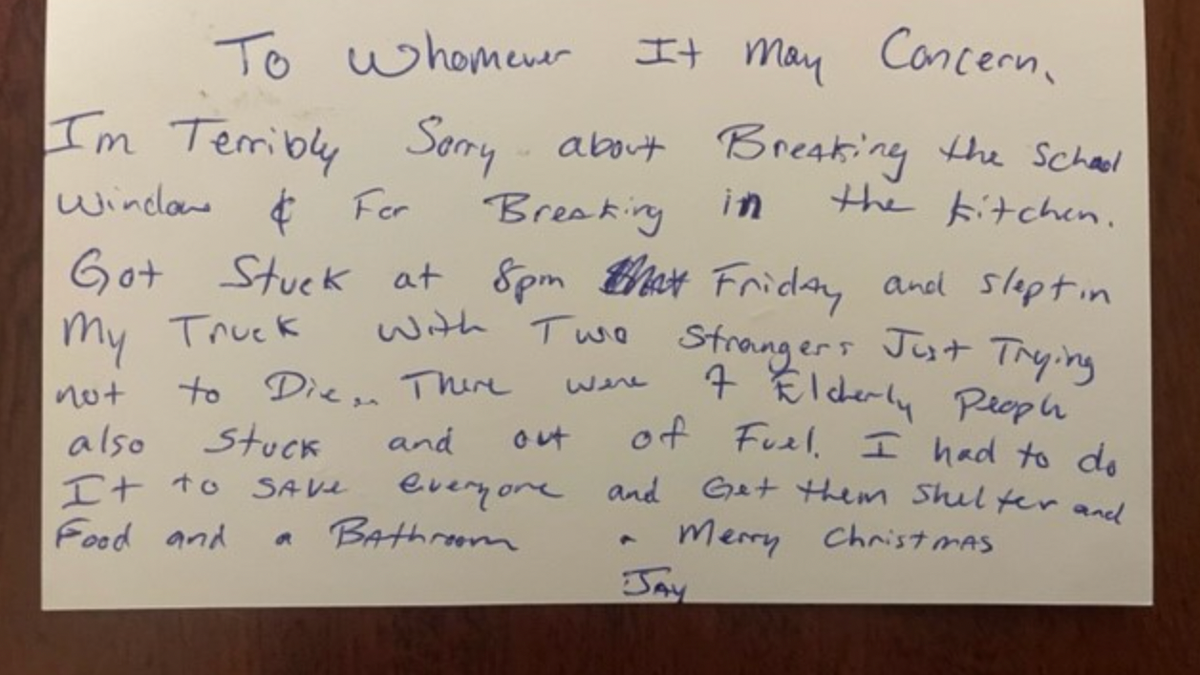 To Whomever It May Concern,
I'm Terribly Sorry about Breaking the School
Window & For Breaking in the Kitchen.
Got Stuck at 8pm Friday and slept in
My Truck with Two Strangers Just Trying
not to Die... There were 7 Elderly People
also Stuck and out of Fuel. I had to do
It to SAVE everyone and Get them shelter and
Food and a Bathroom - Merry Christmas
Jay